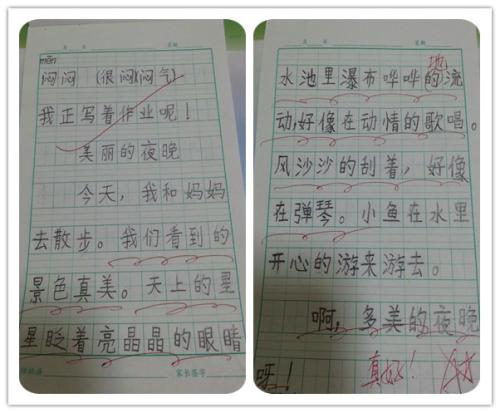 mēn
闷闷 (很闷)(闷气)
我正写着作业呢！
美丽的夜晚
今天，我和妈妈
去散步。我们看到的
景色真美。天上的星
星眨着亮晶晶的眼睛
家长签字
水池里瀑布哗哗的流
地
动，好像在动情的歌唱。
风沙沙的刮着，好像
在弹琴。小鱼在水里
开心的游来游去。
啊，多美的夜晚
呀！ 真好！